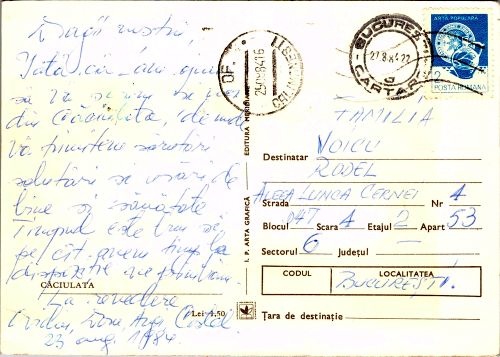 Dragii noștri
Iată că
să vă scriem
din Căciulata, de unde
vă trimitem sărutări
salutări și urări de
bine și sănătate
Timpul este bun și
pe cât avem timp la
dispoziție ne plimbăm
La revedere
23 aug. 1984
CĂCIULATA
Lei 1,50
I. P. ARTA GRAFICĂ
EDITURA MERIDIANE
OF.
25.08.84.16
BUCUREȘTI
27.8.84.22
CARTARE
ARTA POPULARA
2
POSTA ROMANA
FAMILIA
Destinatar VOICU
RODEL
ALEEA LUNCA CERNEI
Strada Nr 4
Blocul D47 Scara 4 Etajul 2 Apart 53
Sectorul 6 Județul —
CODUL LOCALITATEA
BUCUREȘTI
Țara de destinație